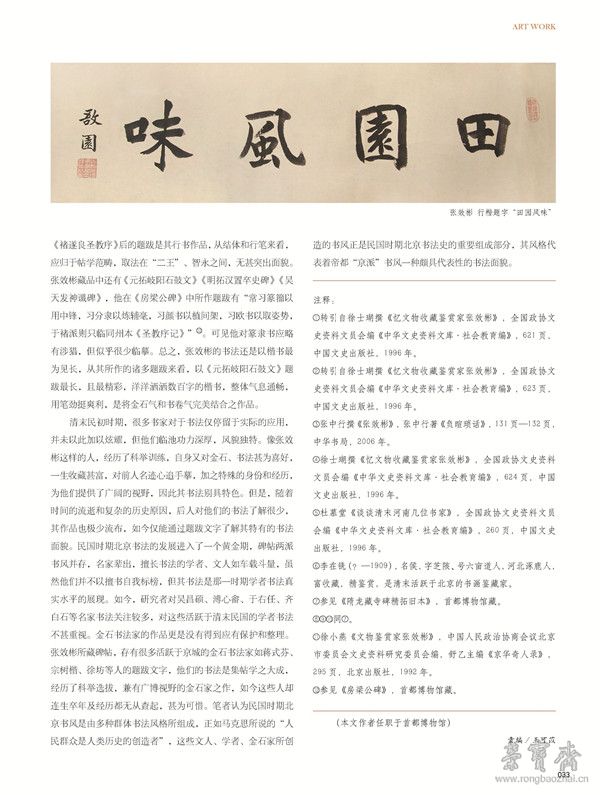 ART WORK
味風園田
敔園
张效彬 行楷题字“田园风味”
《褚遂良圣教序》后的题跋是其行书作品，从结体和行笔来看，
应归于帖学范畴，取法在“二王”、智永之间，无甚突出面貌。
张效彬藏品中还有《元拓岐阳石鼓文》《明拓汉置卒史碑》《吴
天发神谶碑》，他在《房梁公碑》中所作题跋有“常习篆籀以
用中锋，习分隶以炼辅毫，习颜书以植间架，习欧书以取姿势，
于褚派则只临同州本《圣教序记》”。可见他对篆隶书应略
有涉猎，但似乎很少临摹。总之，张效彬的书法还是以楷书最
为见长，从其所作的诸多题跋来看，以《元拓岐阳石鼓文》题
跋最长，且最精彩，洋洋洒洒数百字的楷书，整体气息通畅，
用笔劲挺爽利，是将金石气和书卷气完美结合之作品。
清末民初时期，很多书家对于书法仅停留于实际的应用，
并未以此加以炫耀，但他们临池功力深厚，风貌独特。像张效
彬这样的人，经历了科举训练，自身又对金石、书法甚为喜好，
一生收藏甚富，对前人名迹心追手摹，加之特殊的身份和经历，
为他们提供了广阔的视野，因此其书法别具特色。但是，随着
时间的流逝和复杂的历史原因，后人对他们的书法了解很少，
其作品也极少流布，如今仅能通过题跋文字了解其特有的书法
面貌。民国时期北京书法的发展进入了一个黄金期，碑帖两派
书风并存，名家辈出，擅长书法的学者、文人如车载斗量，虽
然他们并不以擅书自我标榜，但其书法是那一时期学者书法真
实水平的展现。如今，研究者对吴昌硕、溥心畬、于右任、齐
白石等名家书法关注较多，对这些活跃于清末民国的学者书法
不甚重视。金石书法家的作品更是没有得到应有保护和整理。
张效彬所藏碑帖，存有很多活跃于京城的金石书法家如蒋式芬、
宗树楷、徐坊等人的题跋文字，他们的书法是集帖学之大成，
经历了科举选拔，兼有广博视野的金石家之作，如今这些人却
连生卒年及经历都无从查起，甚为可惜。笔者认为民国时期北
京书风是由多种群体书法风格所组成，正如马克思所说的“人
民群众是人类历史的创造者”，这些文人、学者、金石家所创
造的书风正是民国时期北京书法史的重要组成部分，其风格代
表着帝都“京派”书风一种颇具代表性的书法面貌。
注释：
①转引自徐士瑚撰《忆文物收藏鉴赏家张效彬》，全国政协文
史资料文员会编《中华文史资料文库·社会教育编》，621页，
中国文史出版社，1996年。
②转引自徐士瑚撰《忆文物收藏鉴赏家张效彬》，全国政协文
史资料文员会编《中华文史资料文库·社会教育编》，623页，
中国文史出版社，1996年。
③张中行撰《张效彬》，张中行著《负暄琐话》，131页—132页，
中华书局，2006年。
④徐士瑚撰《忆文物收藏鉴赏家张效彬》，全国政协文史资料
文员会编《中华文史资料文库·社会教育编》，624页，中国
文史出版社，1996年。
⑤杜慕堂《谈谈清末河南几位书家》，全国政协文史资料文员
会编《中华文史资料文库·社会教育编》，260页，中国文史
出版社，1996年。
⑥李在铣(？—1909)，名侯，字芝陔、号六亩道人，河北涿鹿人，
富收藏，精鉴赏，是清末活跃于北京的书画鉴藏家。
⑦参见《隋龙藏寺碑精拓旧本》，首都博物馆藏。
⑧⑨⑩同⑦。
⑪徐小燕《文物鉴赏家张效彬》，中国人民政治协商会议北京
市委员会文史资料研究委员会编，舒乙主编《京华奇人录》，
295页，北京出版社，1992年。
⑫参见《房梁公碑》，首都博物馆藏。
（本文作者任职于首都博物馆）
荣宝斋
www.rongbaozhai.cn
033